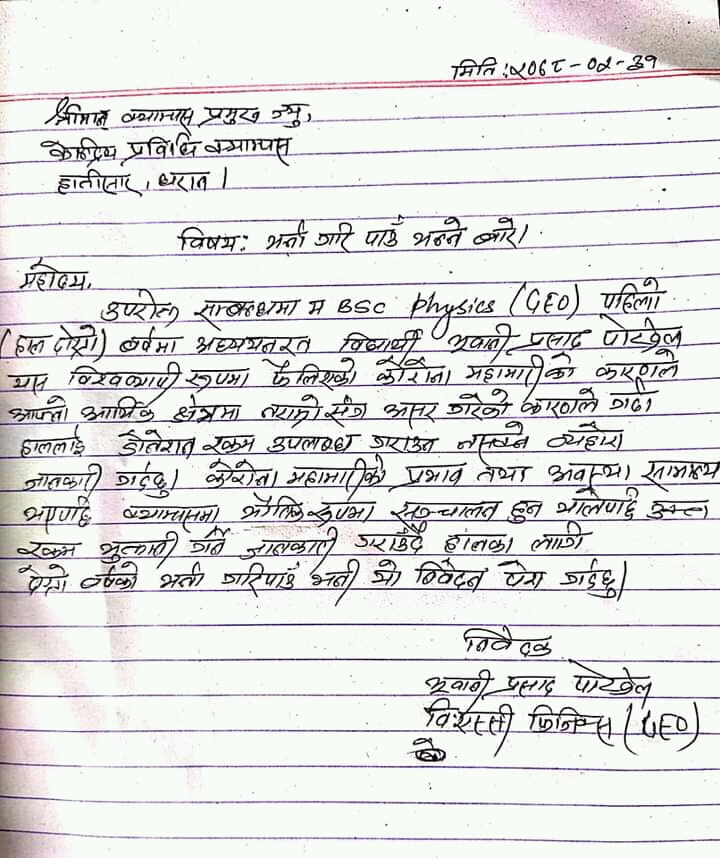 मिति: २०७८-०२-३१
श्रीमान् क्याम्पस प्रमुख ज्यु,
केन्द्रिय प्रविधि क्याम्पस
हात्तीसार, धरान।
विषय: भर्ना गरि पाउँ भन्ने बारे।
महोदय,
उपरोक्त सम्बन्धमा म BSC Physics (GEO) पहिलो
(हाल दोस्रो) वर्षमा अध्ययनरत विद्यार्थी भवानी प्रसाद पोखरेल
यस विश्वव्यापी रूपमा फैलिएको कोरोना महामारीको कारणले
आफ्नो आर्थिक क्षेत्रमा नराम्रो संग असर गरेको कारणले गर्दा
हाललाई रकम उपलब्ध गराउन नसक्ने व्यहोरा
जानकारी गर्दछु। कोरोना महामारीको प्रभाव तथा अवस्था सामान्य
भएपछि क्याम्पसमा भौतिक रूपमा सञ्चालन हुन थालेपछि उक्त
रकम भुक्तानी गर्ने जानकारी गराउँदै हालका लागी
दोस्रो वर्षको भर्ना गरिपाउँ भनी यो निवेदन पेश गर्दछु।
निवेदक
भवानी प्रसाद पोखरेल
वि.एस्सी फिजिक्स (GEO)